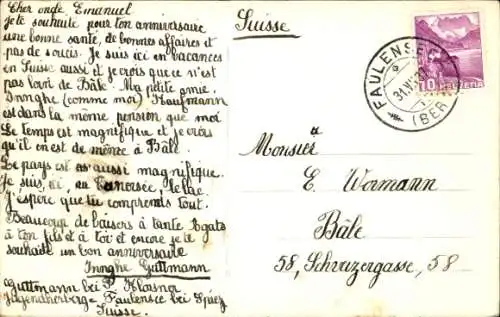 Cher oncle Emanuel
je te souhaite pour ton anniversaire
une bonne santé, de bonnes affaires et
pas de soucis. Je suis ici en vacances
en Suisse aussi et je crois que ce n'est
pas loin de Bâle. Ma petite amie
Innghe (comme moi) Kaufmann
est dans la même pension que moi
Le temps est magnifique et je crois
qu'il en est de même à Bâle.
Le pays est aussi magnifique.
Je suis, ici, le lac.
J'espère que tu comprends tout.
Beaucoup de baisers à tante Agate
à ton fils et à toi et encore je te
souhaite un bon anniversaire
Innghe Guttmann
Guttmann bei Klasner
Jugendherberge Faulensee bei Spiez
Suisse.
Suisse
FAULENSEE
31.V
(BER
10
HELVETIA
Monsieur
E. Wormann
Bâle
58, Schweizergasse, 58